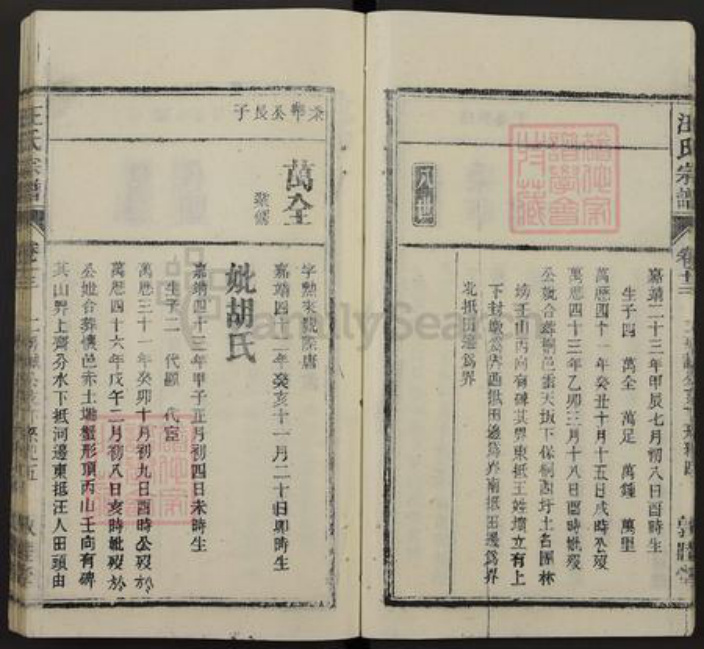 汪氏宗譜
卷十三
嘉靖二十三年甲辰七月初八日酉時生
生子四 萬全 萬足 萬鍾 萬里
萬曆四十一年癸丑十月十五日戌時公歿
萬曆四十三年乙卯三月十八日酉時妣歿
公妣合葬桐邑雲天坂下保桐西圩土名團林
塝壬山丙向有碑其界東抵王姓墳立有上
下封墩為界西抵田邊為界南抵田邊為界
北抵田邊為界
八世
公長子
萬全
字勲來
嘉靖四十二年癸亥十一月二十日卯時生
妣胡氏
嘉靖四十三年甲子正月初四日未時生
生子二 代顯 代宦
萬曆三十一年癸卯十月初九日酉時公歿於
萬曆四十六年戊午二月初八日亥時妣歿於
公妣合葬懷邑赤土塘蟹形頂丙山壬向有碑
其山界上齊分水下抵河邊東抵汪人田頭由
汪氏宗譜
卷十三
FamilySearch